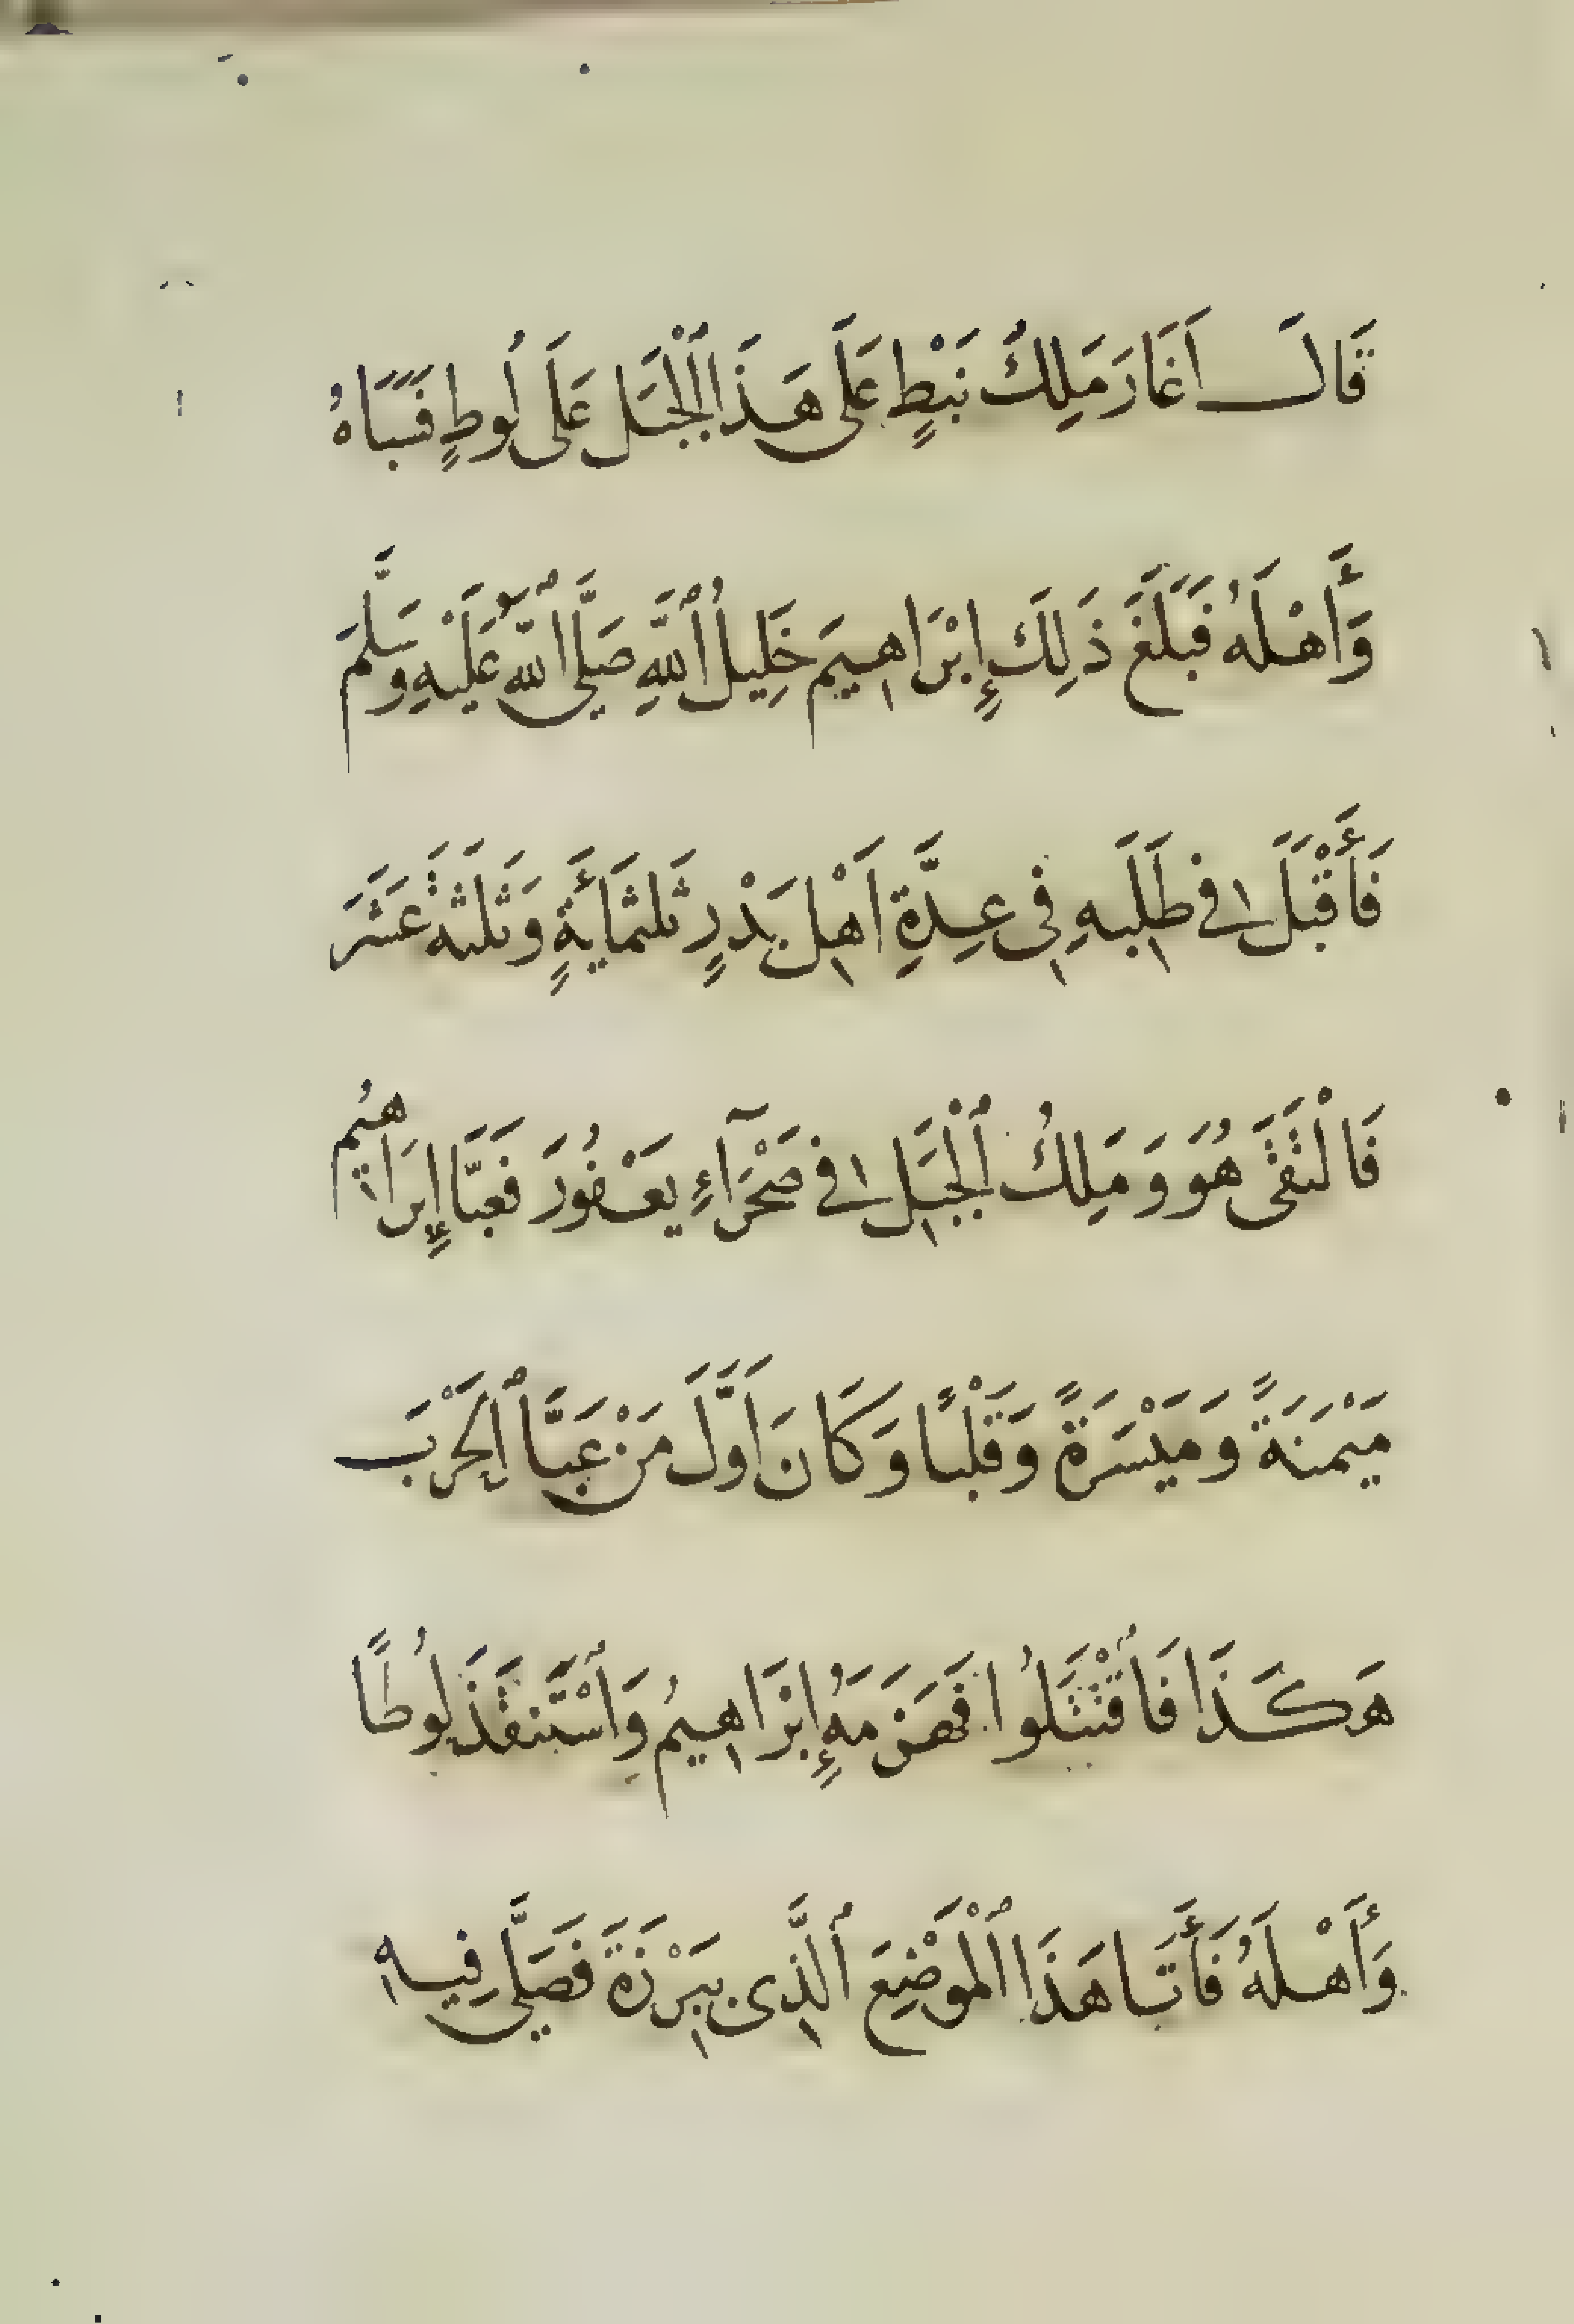 قَالَ اَغَارَ مَلِكُ نَبَطٍ عَلَى هَذَا ٱلْجَبَلِ عَلَى لُوطٍ فَسَبَاهُ
وَأَهْلَهُ فَبَلَغَ ذَلِكَ إِبْرَاهِيمَ خَلِيلُ ٱللَّهِ صَلَّى ٱللَّهُ عَلَيْهِ وَسَلَّمَ
فَأَقْبَلَ فِي طَلَبِهِ فِي عِدَّةِ اَهْلِ بَدْرٍ ثَلثمَايَةٍ وَثَلثَةَ عَشَرَ
فَالْتَقَى هُوَ وَمَلِكُ ٱلْجَبَلِ فِي صَحْرَآءِ يَعْفُورَ فَعَبَّا إِبرَاهِيمُ
مَيْمَنَةً وَمَيْسَرَةً وَقَلْبًا وَكَانَ اَوَّلَ مَنْ عَبَّا ٱلْحَرْبَ
هَكَذَا فَاقْتَتَلُوا فَهَزَمَهُ إِبْرَاهِيمُ وَٱسْتَنقَذَ لُوطًا
وَأَهْلَهُ فَأَتَا هَذَا ٱلْمَوْضِعَ ٱلَّذِى بِبَرْزَةَ فَصَلَّى فِيهِ